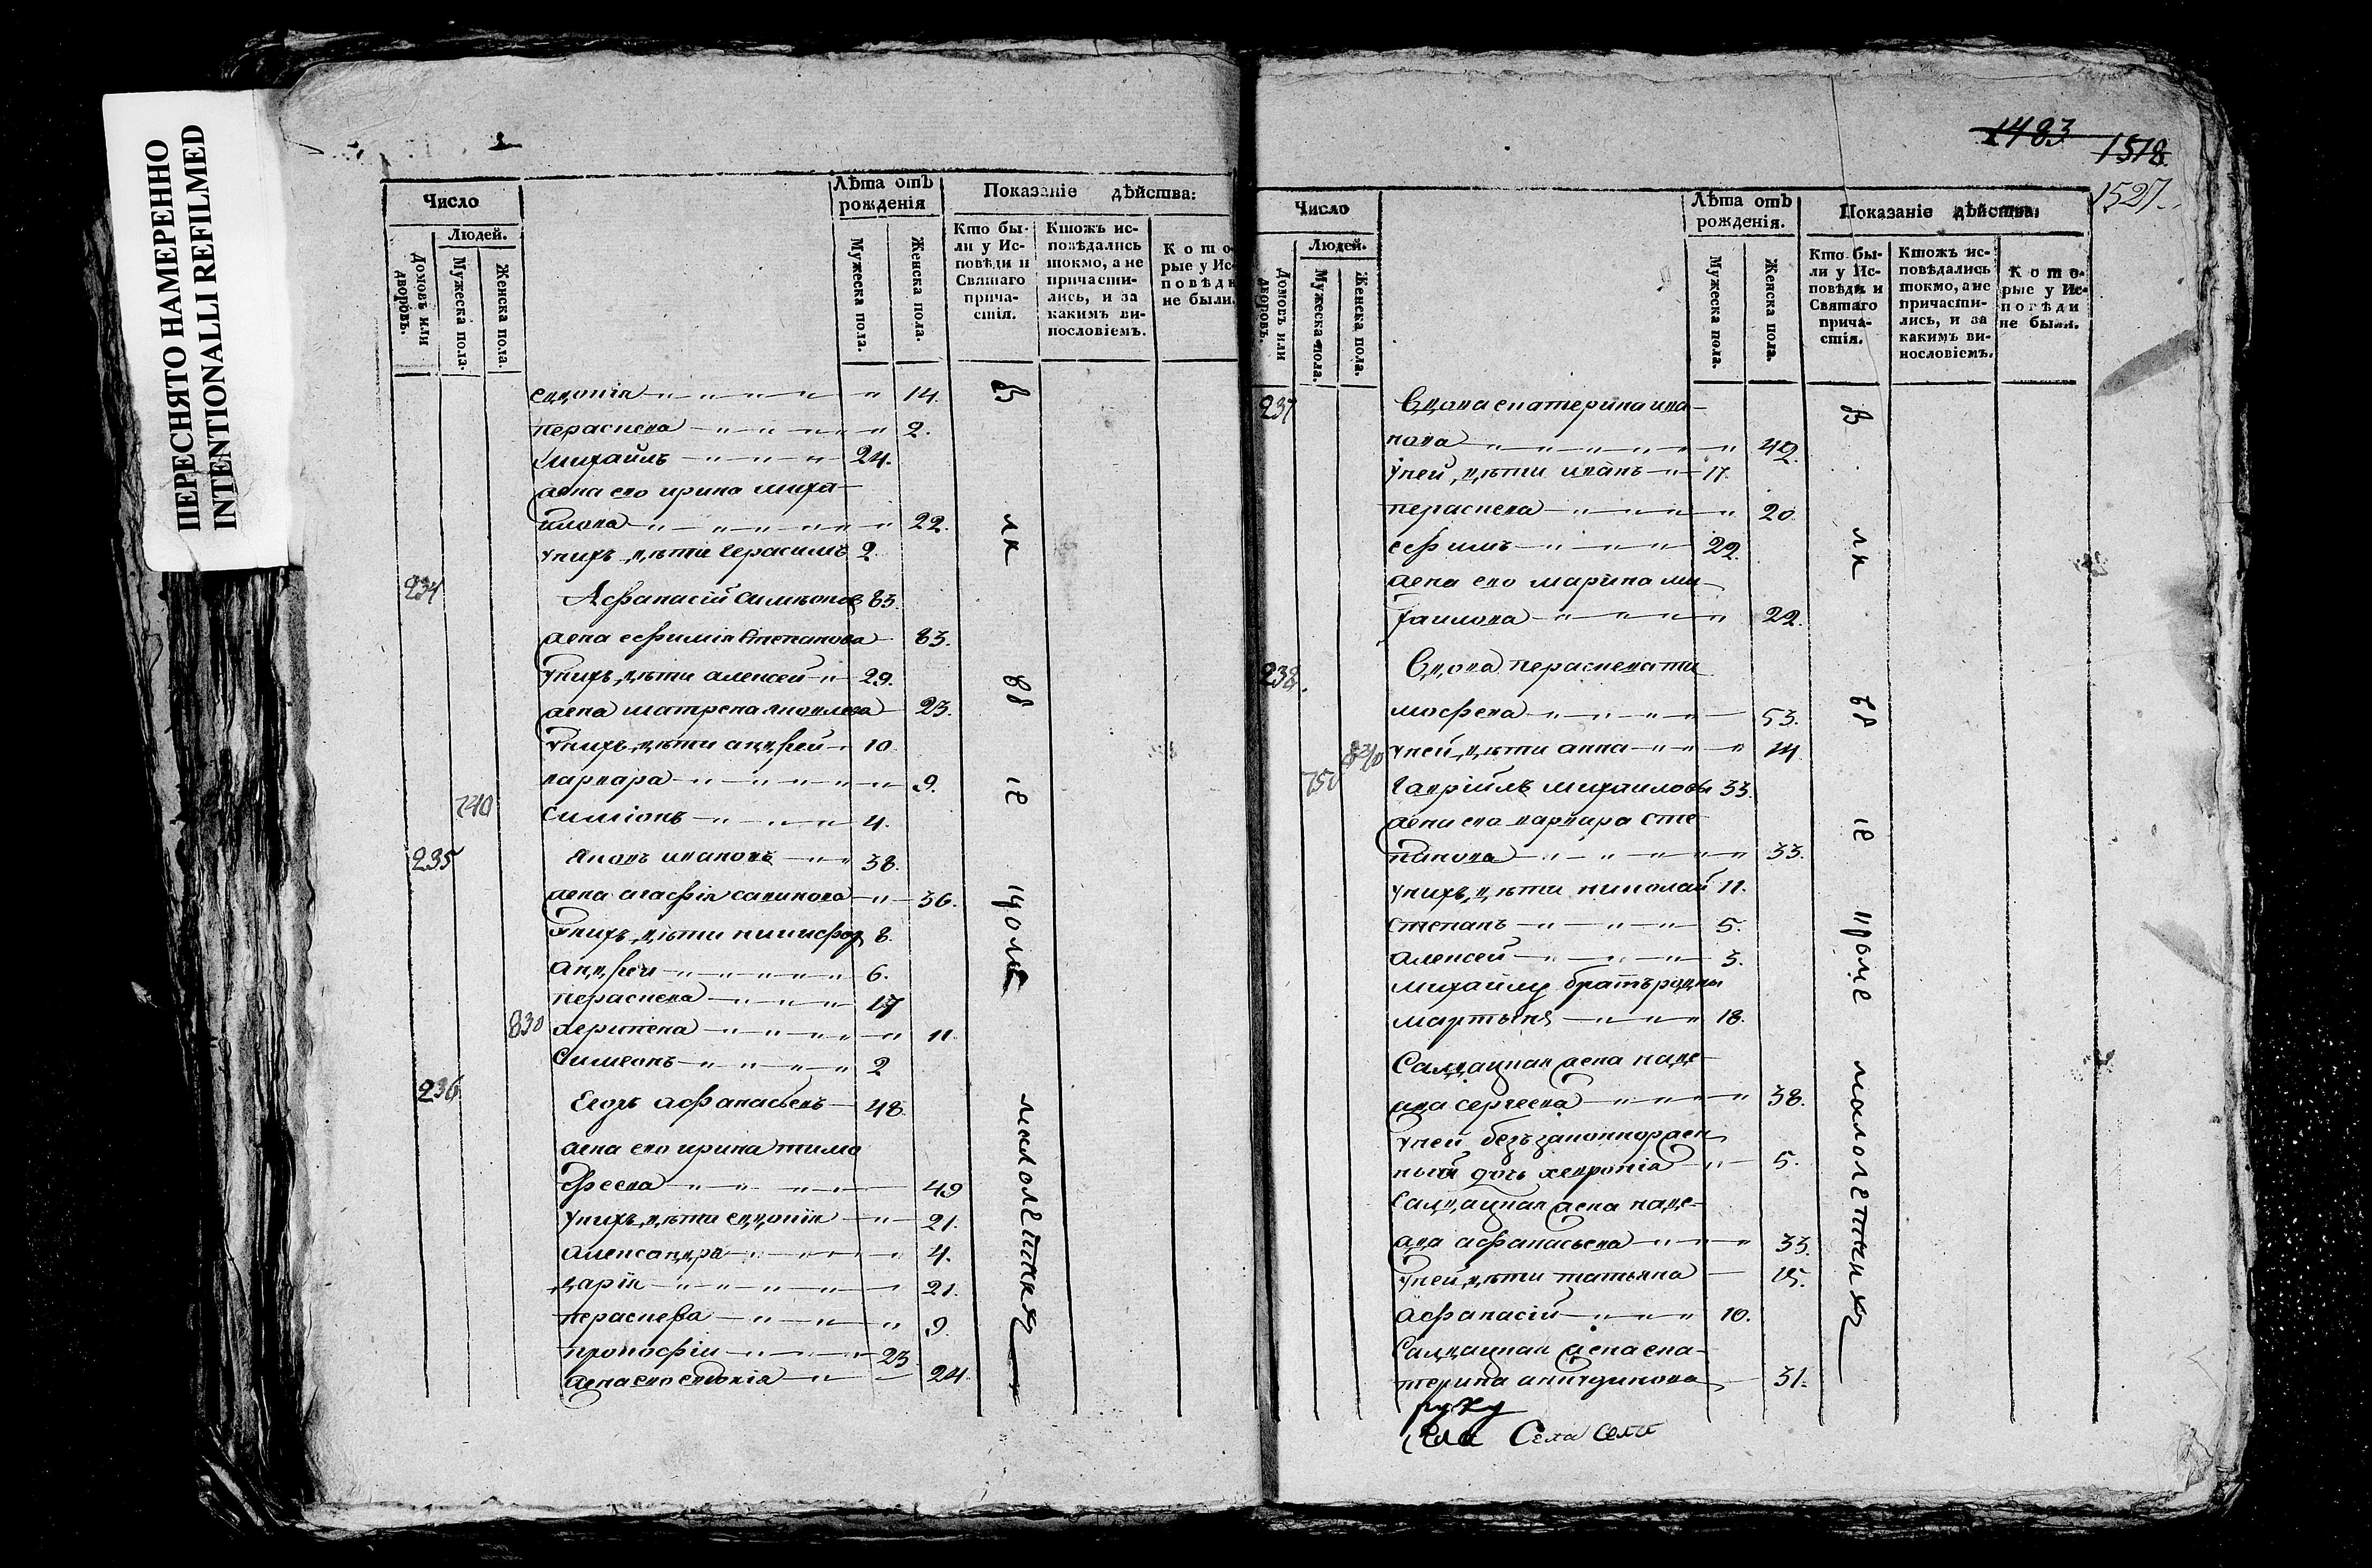 ПЕРЕСНЯТО НАМЕРЕННО
INTENTIONALLI REFILMED
Число
Лѣта отъ рожденія
Показаніе дѣйства:
Людей.
Домовъ или дворовъ.
Мужеска пола.
Женска пола.
Мужеска пола.
Женска пола.
Кто были у Исповѣди и Святаго причастія.
Ктожъ исповѣдались токмо, а не причастились, и за какимъ винословіемъ.
Которые у Исповѣди не были.
евдонія 14.
пераскева 2.
михаилъ 24.
жена ево ирина миха-
илова 22.
унихъ дѣти герасимъ 2.
234 Афанасій симионов 83.
жена ефимія Степанова 83.
унихъ дѣти алексей 29.
жена матрена яковлева 23.
унихъ дѣти андрей 10.
варвара 9.
740 Симіонъ 4.
235 яковъ ивановъ 38.
жена агафія савинова 36.
унихъ дѣти никифор 8.
андреи 6.
пераскева 17
830 аерипена 11.
Симеонъ 2
236 Егоръ афанасьевъ 48.
жена ево ирина тимо
феева 49
унихъ дѣти евдонія 21.
александра 4.
дарія 21.
пераскева 9.
прокофіи 23
жена ево евдокія 24.
малолетних
1483
1518
1527.
Число
Лѣта отъ рожденія.
Показаніе дѣйства:
Людей.
Домовъ или дворовъ.
Мужеска пола.
Женска пола.
Мужеска пола.
Женска пола.
Кто были у Исповѣди и Святаго причастія.
Ктожъ исповѣдались токмо, а не причастились, и за какимъ винословіемъ.
Которые у Исповѣди не были.
237 Вдова екатерина ива-
нова 42.
уней дѣти иванъ 17.
пераскева 20.
ефимъ 22.
жена ево марина ми-
хаилова 22.
238. Вдова пераскева ти
мофева 53.
840 уней дѣти анна 14.
750 гавріилъ михаиловъ 33.
жена ево варвара сте
панова 33.
унихъ дѣти николай 11.
степанъ 5.
алексей 3.
михаилу братъ родны
мартынъ 18.
Салдацкая жена наде-
жда сергеева 38.
уней безъ законнорожен
ный дочь хевронія 5.
Салдацкая жена наде-
жда афанасьева 33.
уней дѣти татьяна 15.
афанасій 10.
Салдацкая жена ека-
терина 31.
кроме малолетних
руку
Села